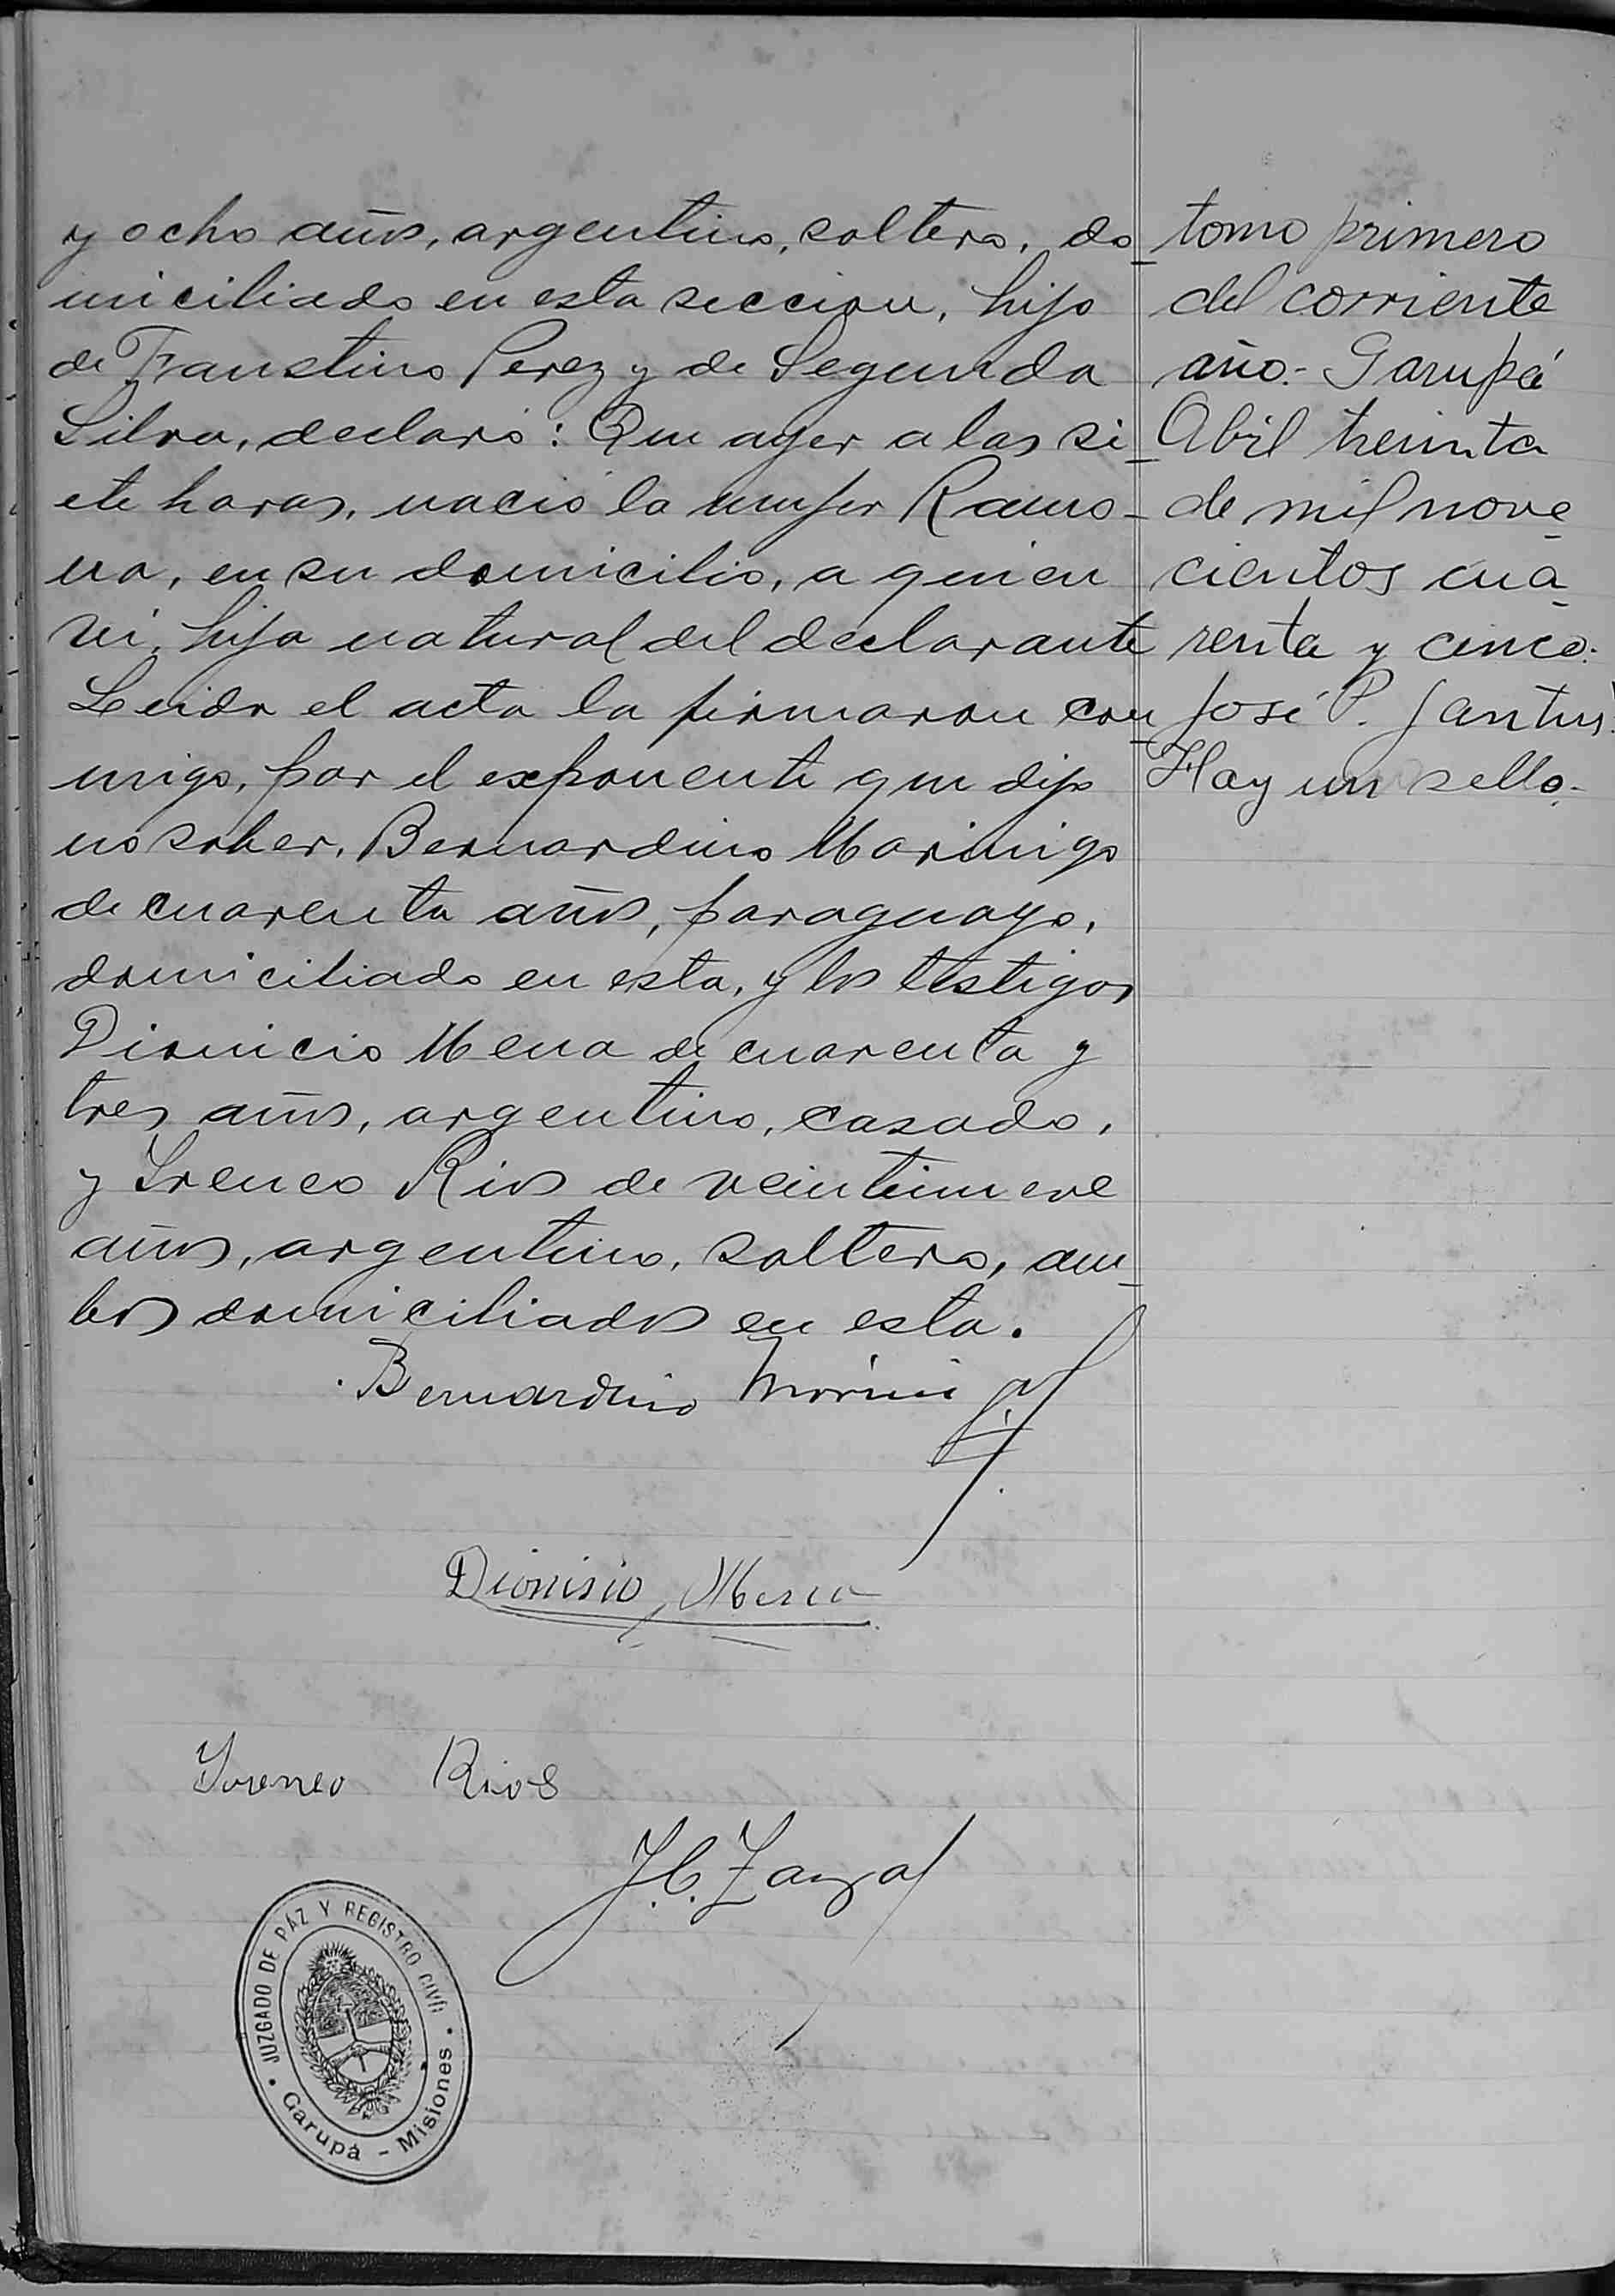 y ocho años, argentino, soltero, do_
miciliado en esta seccion, hijo
de Faustino Perez y de Segunda
Silva, declaró: Que ayer a las si_
ete horas, nació la mujer Ramo-
na, en su domicilio, a quien
vi, hija natural del declarante
Leida el acta la firmaron con_
migo, por el exponente que dijo
no saber, Bernardino Marinigo
de cuarenta años, paraguayo,
domiciliado en esta, y los testigos
Dionicio Mena de cuarenta y
tres años, argentino, casado,
y Ireneo Rios de veintinueve
años, argentino, soltero, am_
bos domiciliados en esta.
Bernardino
Dionisio Mena
Yreneo Rios
J.C.
JUZGADO DE PÁZ Y REGISTRO CIVIL
Garupá - Misiones
tomo primero
del corriente
año.- Garupá
Abril treinta
de mil nove_
cientos cua_
renta y cinco.
José P. Santus.
Hay un sello.-